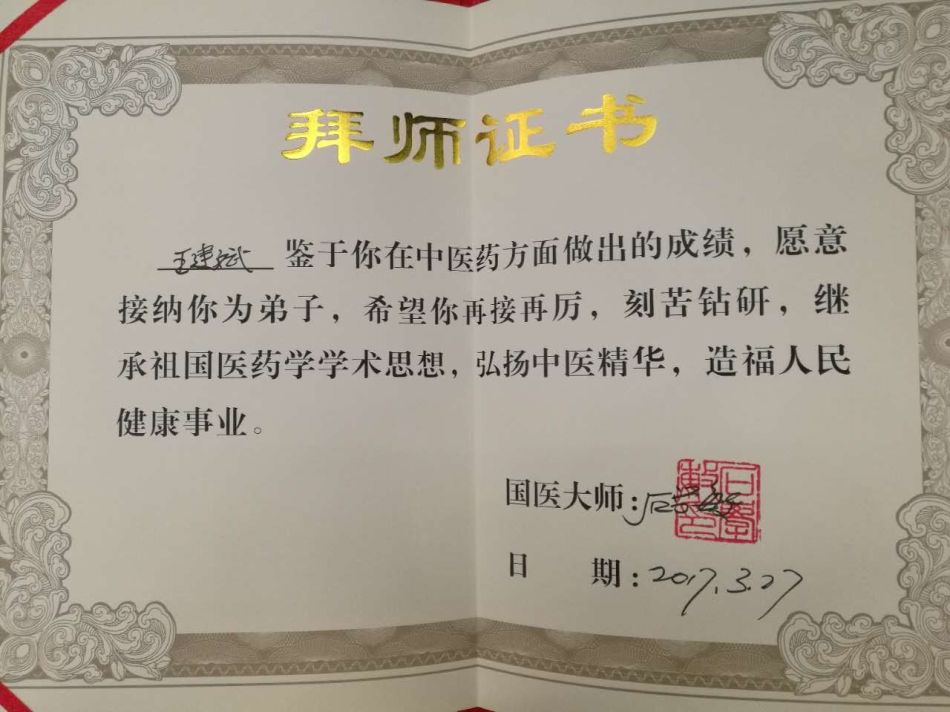 拜师证书
王建斌 鉴于你在中医药方面做出的成绩，愿意
接纳你为弟子，希望你再接再厉，刻苦钻研，继
承祖国医药学学术思想，弘扬中医精华，造福人民
健康事业。
国医大师：石学敏
石學敏印
日 期：2017.3.27